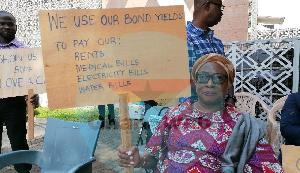 WE USE OUR BOND YIELDS
TO PAY OUR:
RENTS
MEDICAL BILLS
ELECTRICITY BILLS
WATER BILLS
US
LOVE &